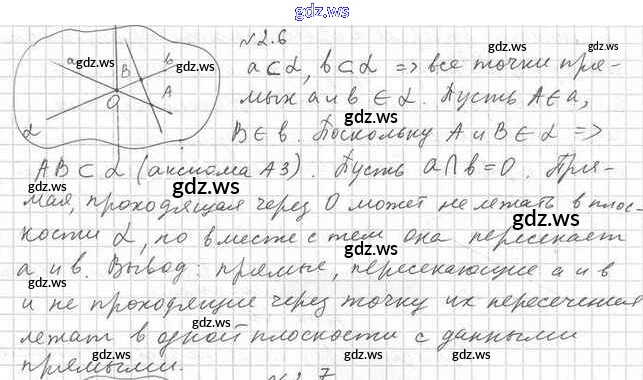 gdz.ws
№2.6
a ⊂ α, b ⊂ α => все точки пря-
мых a и b ∈ α. Пусть A ∈ a,
B ∈ b. Поскольку A и B ∈ α =>
AB ⊂ α (аксиома A3). Пусть a ∩ b = O. Пря-
мая, проходящая через O может не лежать в плос-
кости α, но вместе с тем она пересекает
a и b. Вывод: прямые, пересекающие a и b
и не проходящие через точку их пересечения
лежат в одной плоскости с данными
прямыми.
a
B
b
A
O
α
gdz.ws
gdz.ws
gdz.ws
gdz.ws
gdz.ws
gdz.ws
gdz.ws
gdz.ws
gdz.ws
gdz.ws
gdz.ws
gdz.ws
gdz.ws